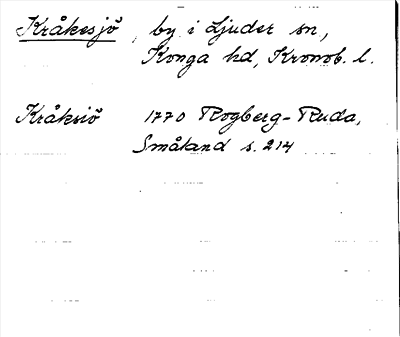 Kråkesjö, by i Ljuder sn,
Konga hd, Kronob. l.
Kråksiö 1770 Rogberg-Ruda,
Småland s. 214